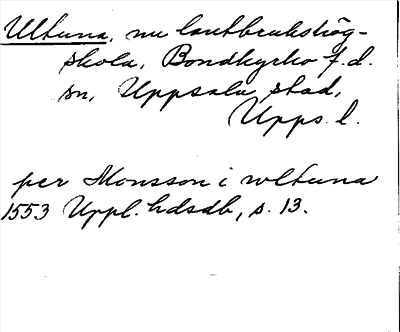 Ultuna, nu lantbrukshög-
skola, Bondkyrko f.d.
sn, Uppsala stad,
Upps. l.
per Monsson i wltuna
1553 Uppl. hdsdb, s. 13.